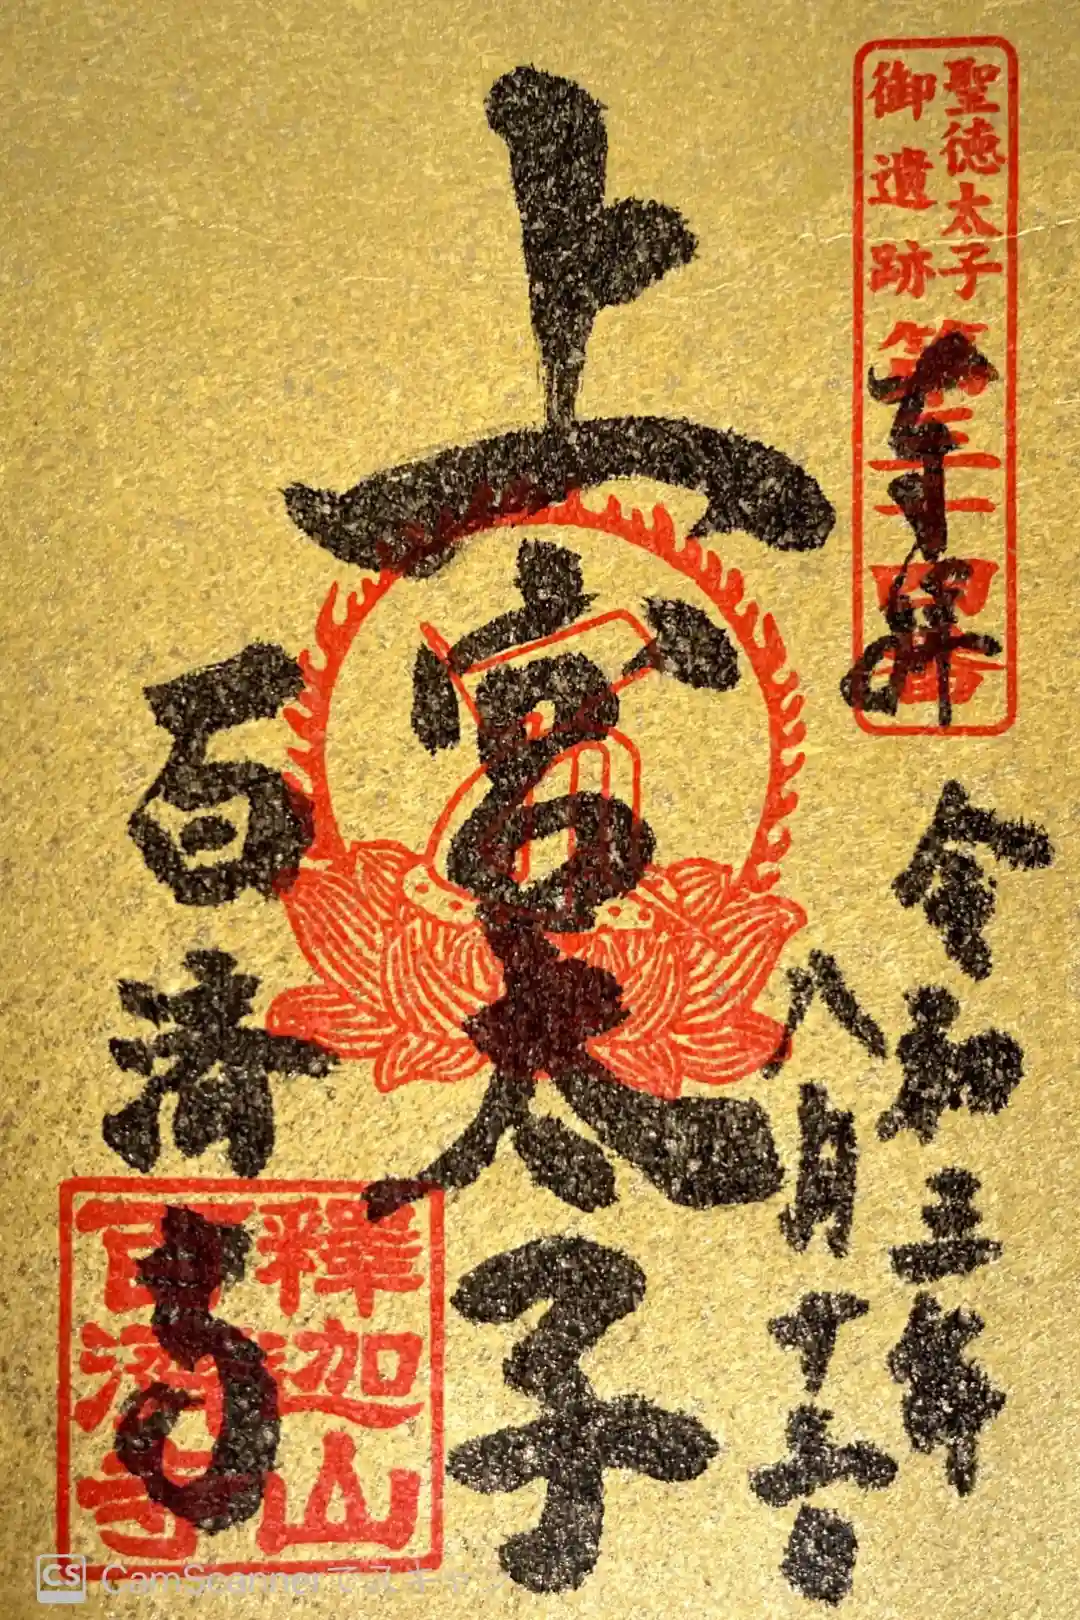 聖徳太子
御遺跡
第三十四番
奉拝
令和三年
八月十六日
上宮太子
百済寺
釋迦山
百濟寺
CS CamScannerでスキャン